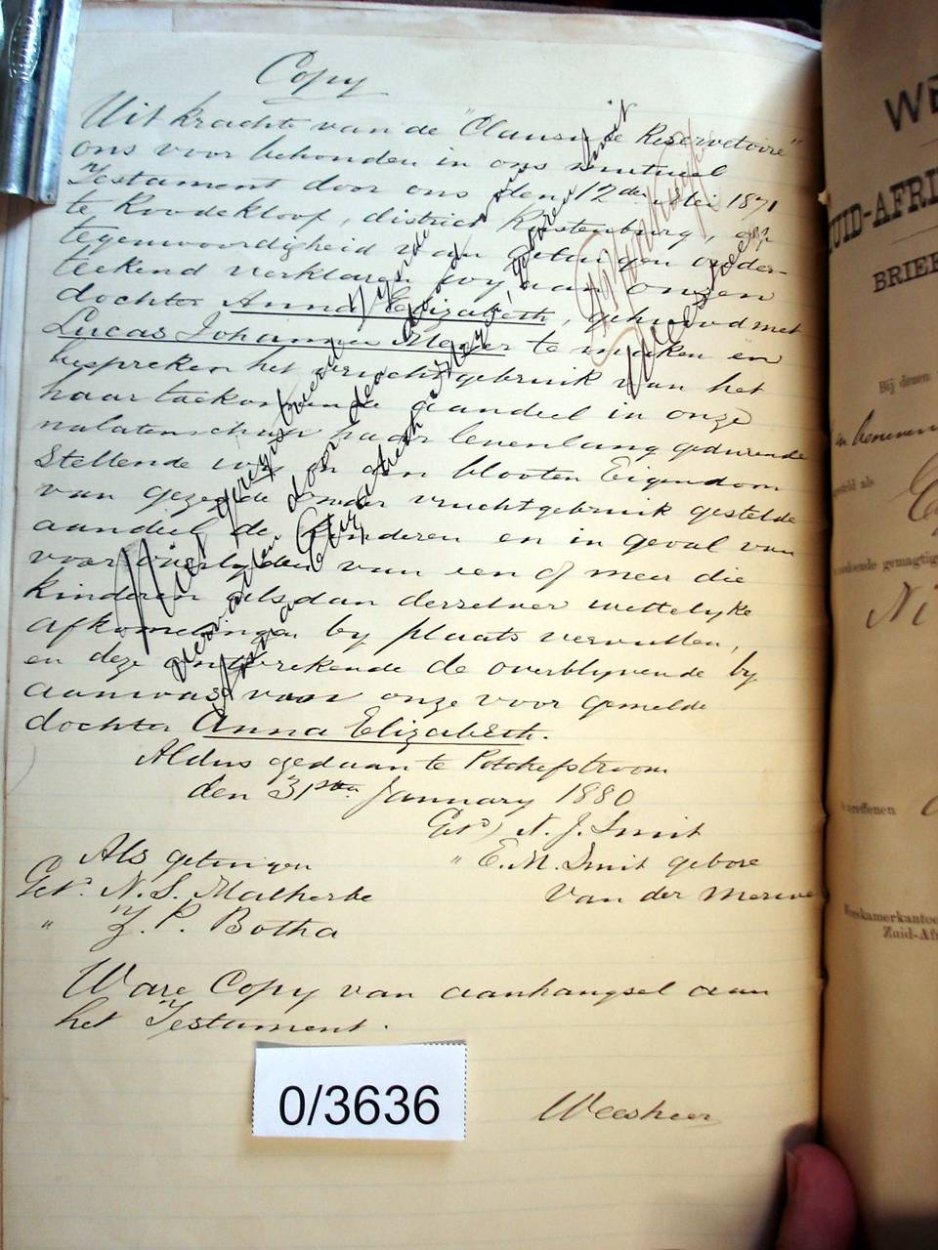 Copy
Uit krachte van de "Clausule Reservetoire"
ons voor behonden in ons mutueel
Testament door ons den 12de Mei 1871
te Roodekloof, district Rustenburg, in
tegenwoordigheid van getuigen onder-
teekend verklaren wy aan onzen
dochter Anna Elizabeth, gehuwd met
Lucas Johannes Meyer te maken en
bespreken het vruchtgebruik van het
haar toekomende aandeel in onze
nalatenschap haar levenlang gedurende
Stellende wy den blooten Eigendom
van gezegde onder vruchtgebruik gestelde
aandeel de kinderen en in geval van
vooroverlyden van een of meer die
kinderen alsdan derzelver wettelyke
afkomelingen by plaats vervullen,
en deze ontbrekende de overblyvende by
aanwas van onze voor gemelde
dochter Anna Elizabeth.
Aldus gedaan te Potchefstroom
den 31sten January 1880
Get) N. J. Smit
" E. M. Smit gebore
Van der Merwe
Als getuigen
Get. N. S. Malherbe
" Z. P. Botha
Ware Copy van aanhangsel aan
het Testament.
Weesheer
Hier geregistreerd zynde
door den
Anna Elizabeth Meyer, geboren Smit
Weesheer
0/3636
WE
ZUID-AFRI
BRIEF
Bij dezen
en benoemen
gesteld als
gemagtig
Ni
Weeskamerkantoo
Zuid-Afr